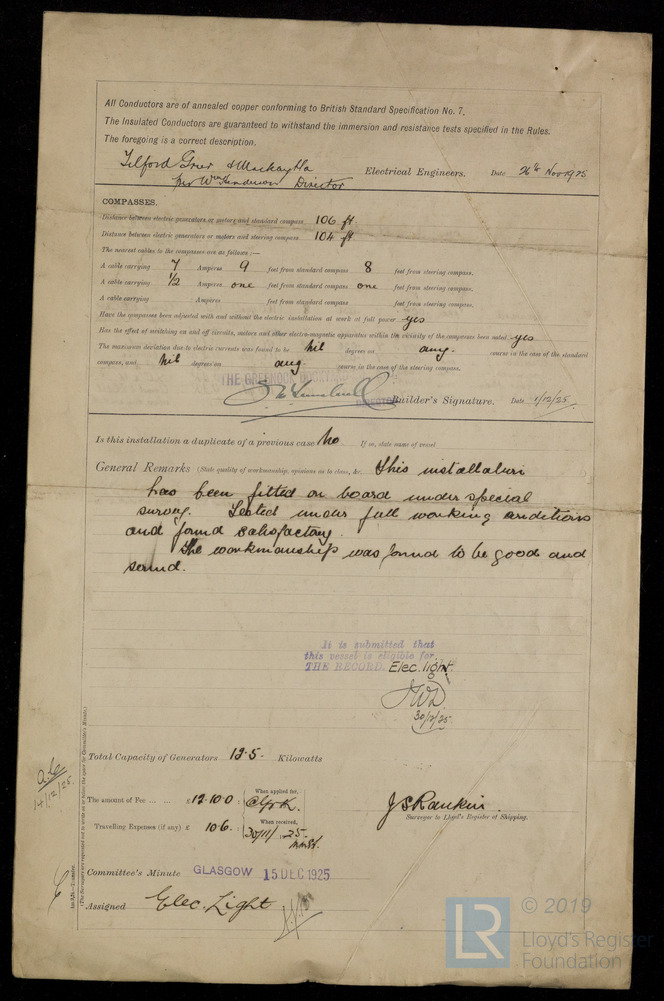 All Conductors are of annealed copper conforming to British Standard Specification No. 7.
The Insulated Conductors are guaranteed to withstand the immersion and resistance tests specified in the Rules.
The foregoing is a correct description.
Telford Grier & Mackay Electrical Engineers. Date 26th Nov 1925
per Wm Henderson Director
COMPASSES.
Distance between electric generators or motors and standard compass 106 ft
Distance between electric generators or motors and steering compass 104 ft
The nearest cables to the compasses are as follows:—
A cable carrying 7 Amperes 9 feet from standard compass 8 feet from steering compass.
A cable carrying 1/2 Amperes one feet from standard compass one feet from steering compass.
A cable carrying Amperes feet from standard compass feet from steering compass.
Have the compasses been adjusted with and without the electric installation at work at full power yes
Has the effect of switching on and off circuits, motors and other electro-magnetic apparatus within the vicinity of the compasses been noted yes
The maximum deviation due to electric currents was found to be Nil degrees on any. course in the case of the standard
compass, and Nil degrees on any course in the case of the steering compass.
THE GREENOCK
DIRECTOR
Builder's Signature. Date 1/12/25.
Is this installation a duplicate of a previous case No If so, state name of vessel
General Remarks (State quality of workmanship, opinions as to class, &c. This installation
has been fitted on board under special
survey. Tested under full working conditions
and found satisfactory.
The workmanship was found to be good and
sound.
It is submitted that
this vessel is eligible for
THE RECORD. Elec. light.
JWD
30/12/25
Total Capacity of Generators 12.5 Kilowatts
The amount of Fee ... ... £ 12.10.0 When applied for,
Travelling Expenses (if any) £ 10.6. When received,
30/11/25
J S Rankin
Surveyor to Lloyd's Register of Shipping.
14/12/25
Committee's Minute GLASGOW 15 DEC 1925
Assigned Elec. Light
LR © 2019
Lloyd's Register
Foundation